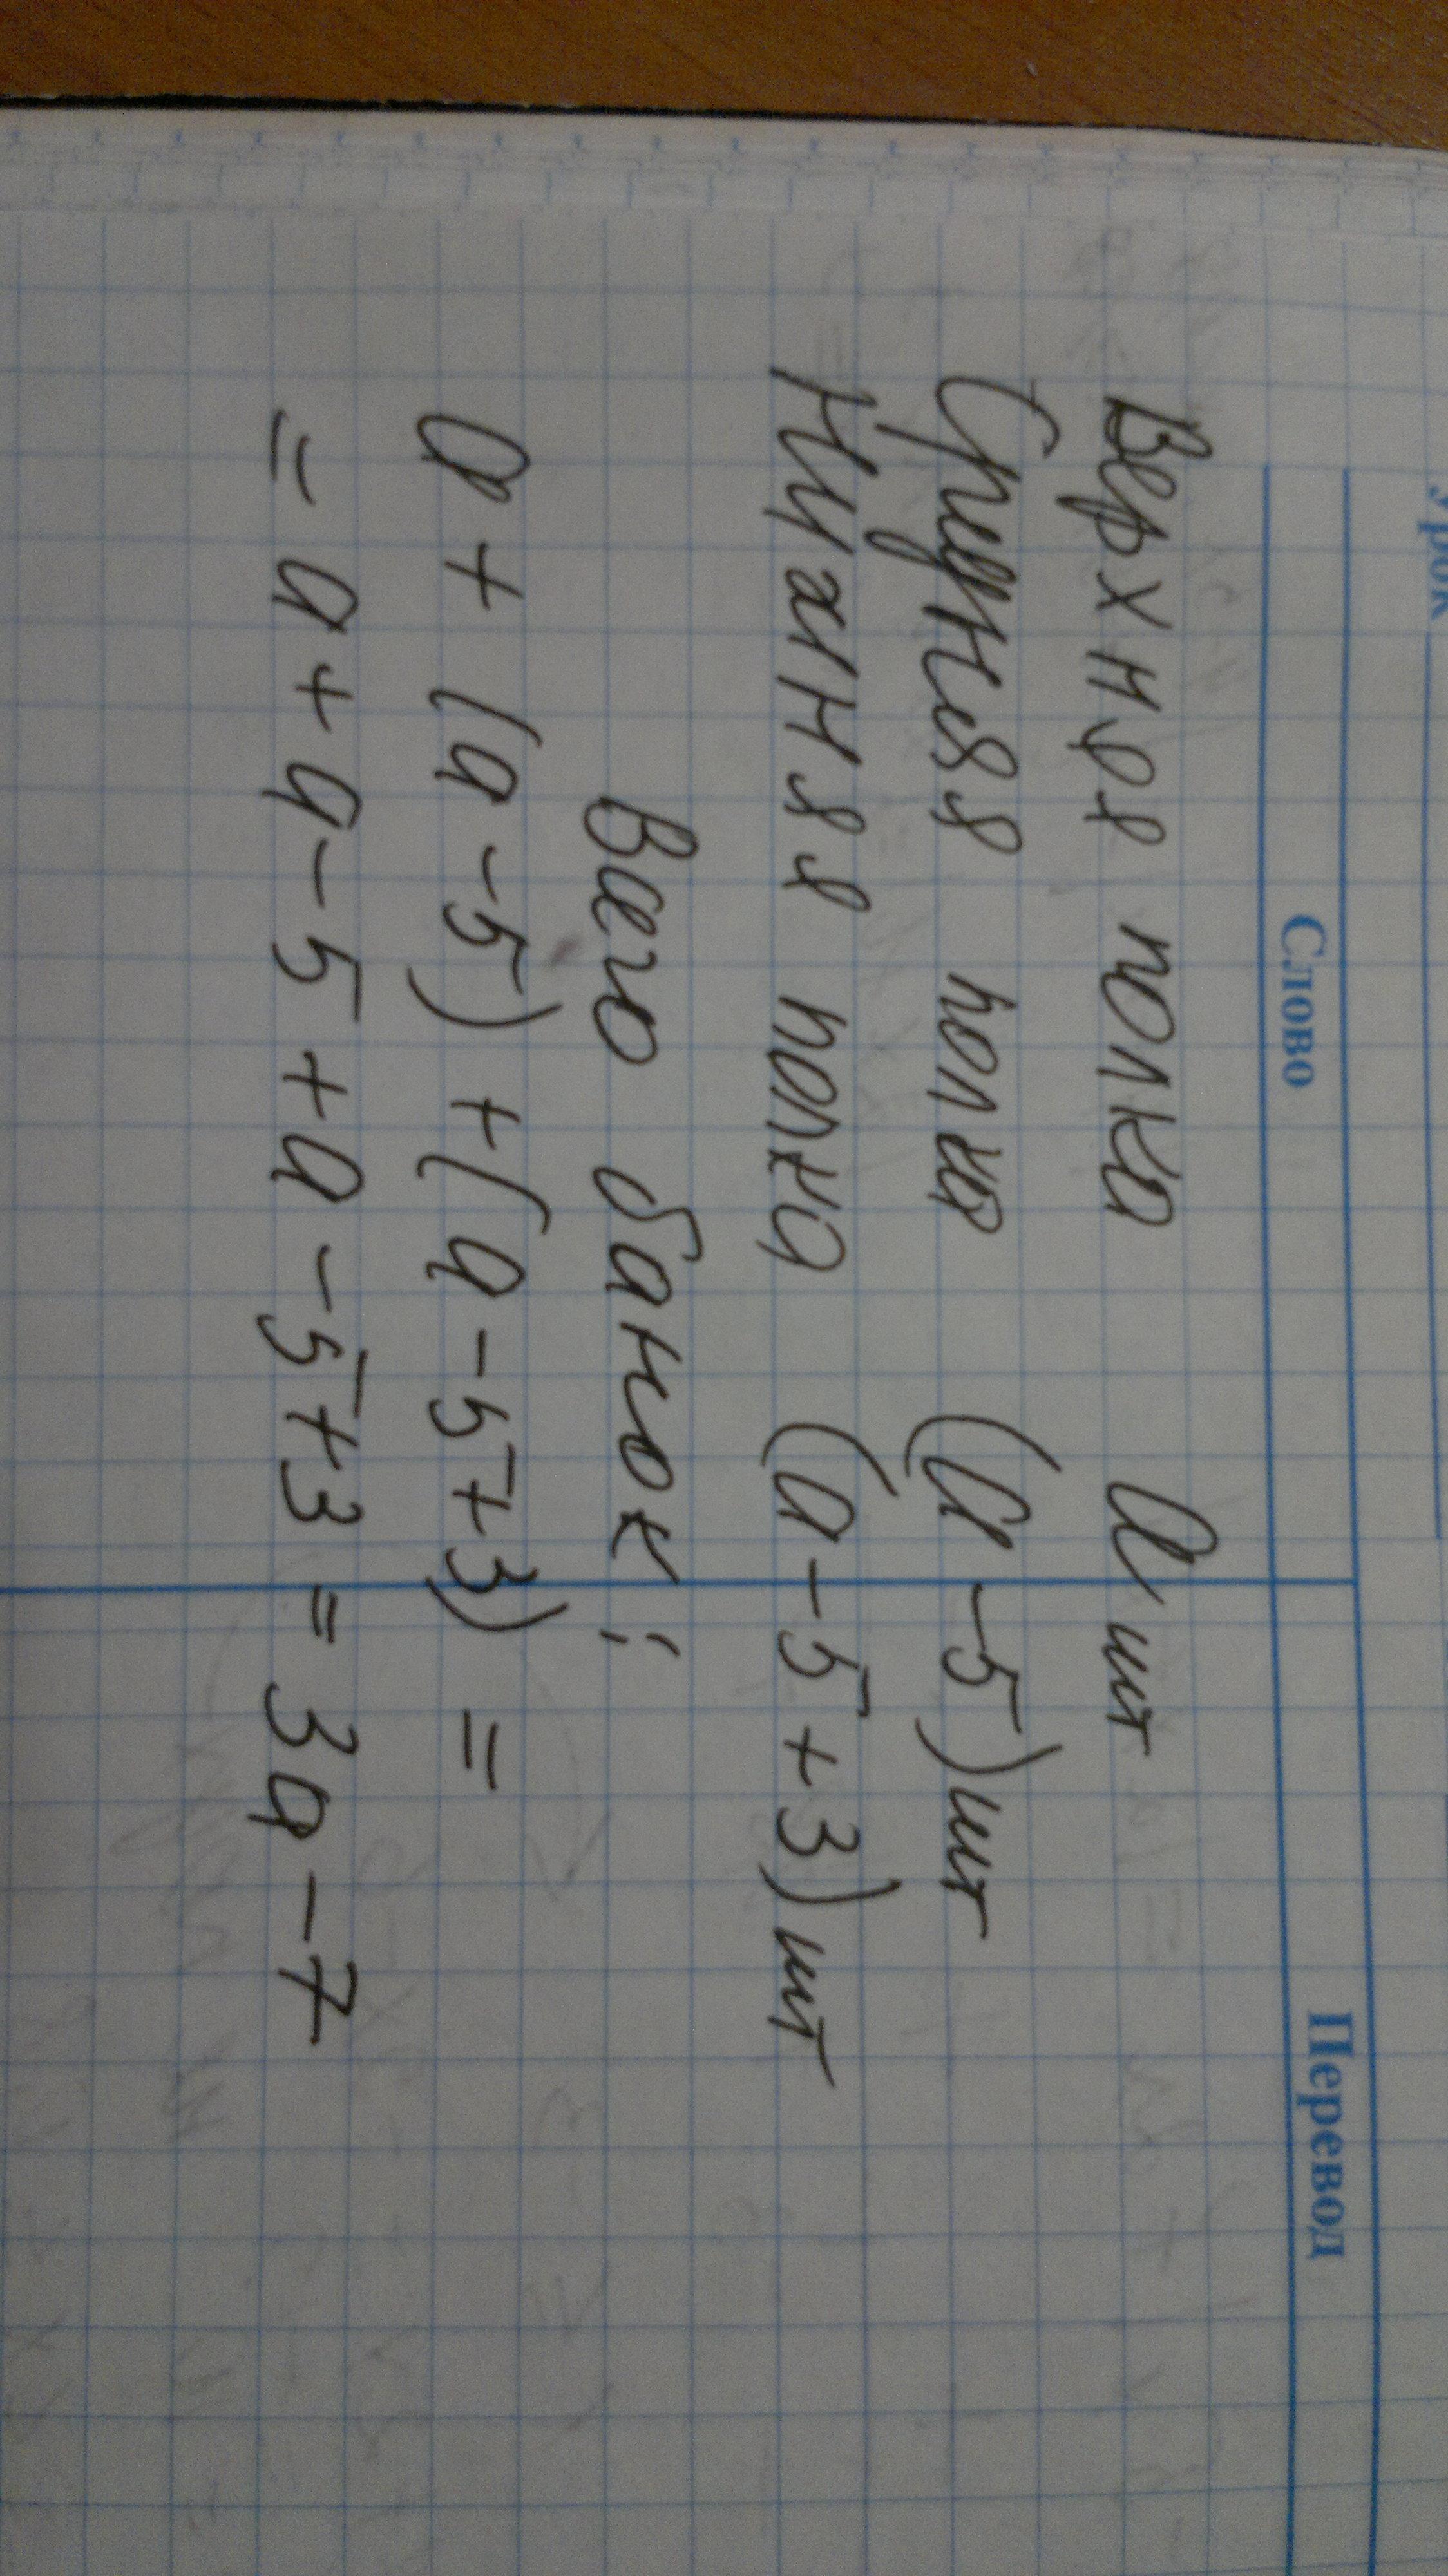 Урок
Слово Перевод
Верхняя полка а шт
Средняя полка (а - 5) шт
Нижняя полка (а - 5 + 3) шт
Всего банок:
а + (а - 5) + (а - 5 + 3) =
= а + а - 5 + а - 5 + 3 = 3а - 7